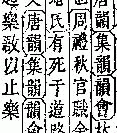 唐韻集韻韻會
周禮秋官蜡
氏有死于道路
唐韻集韻韻會
樂敔以止樂